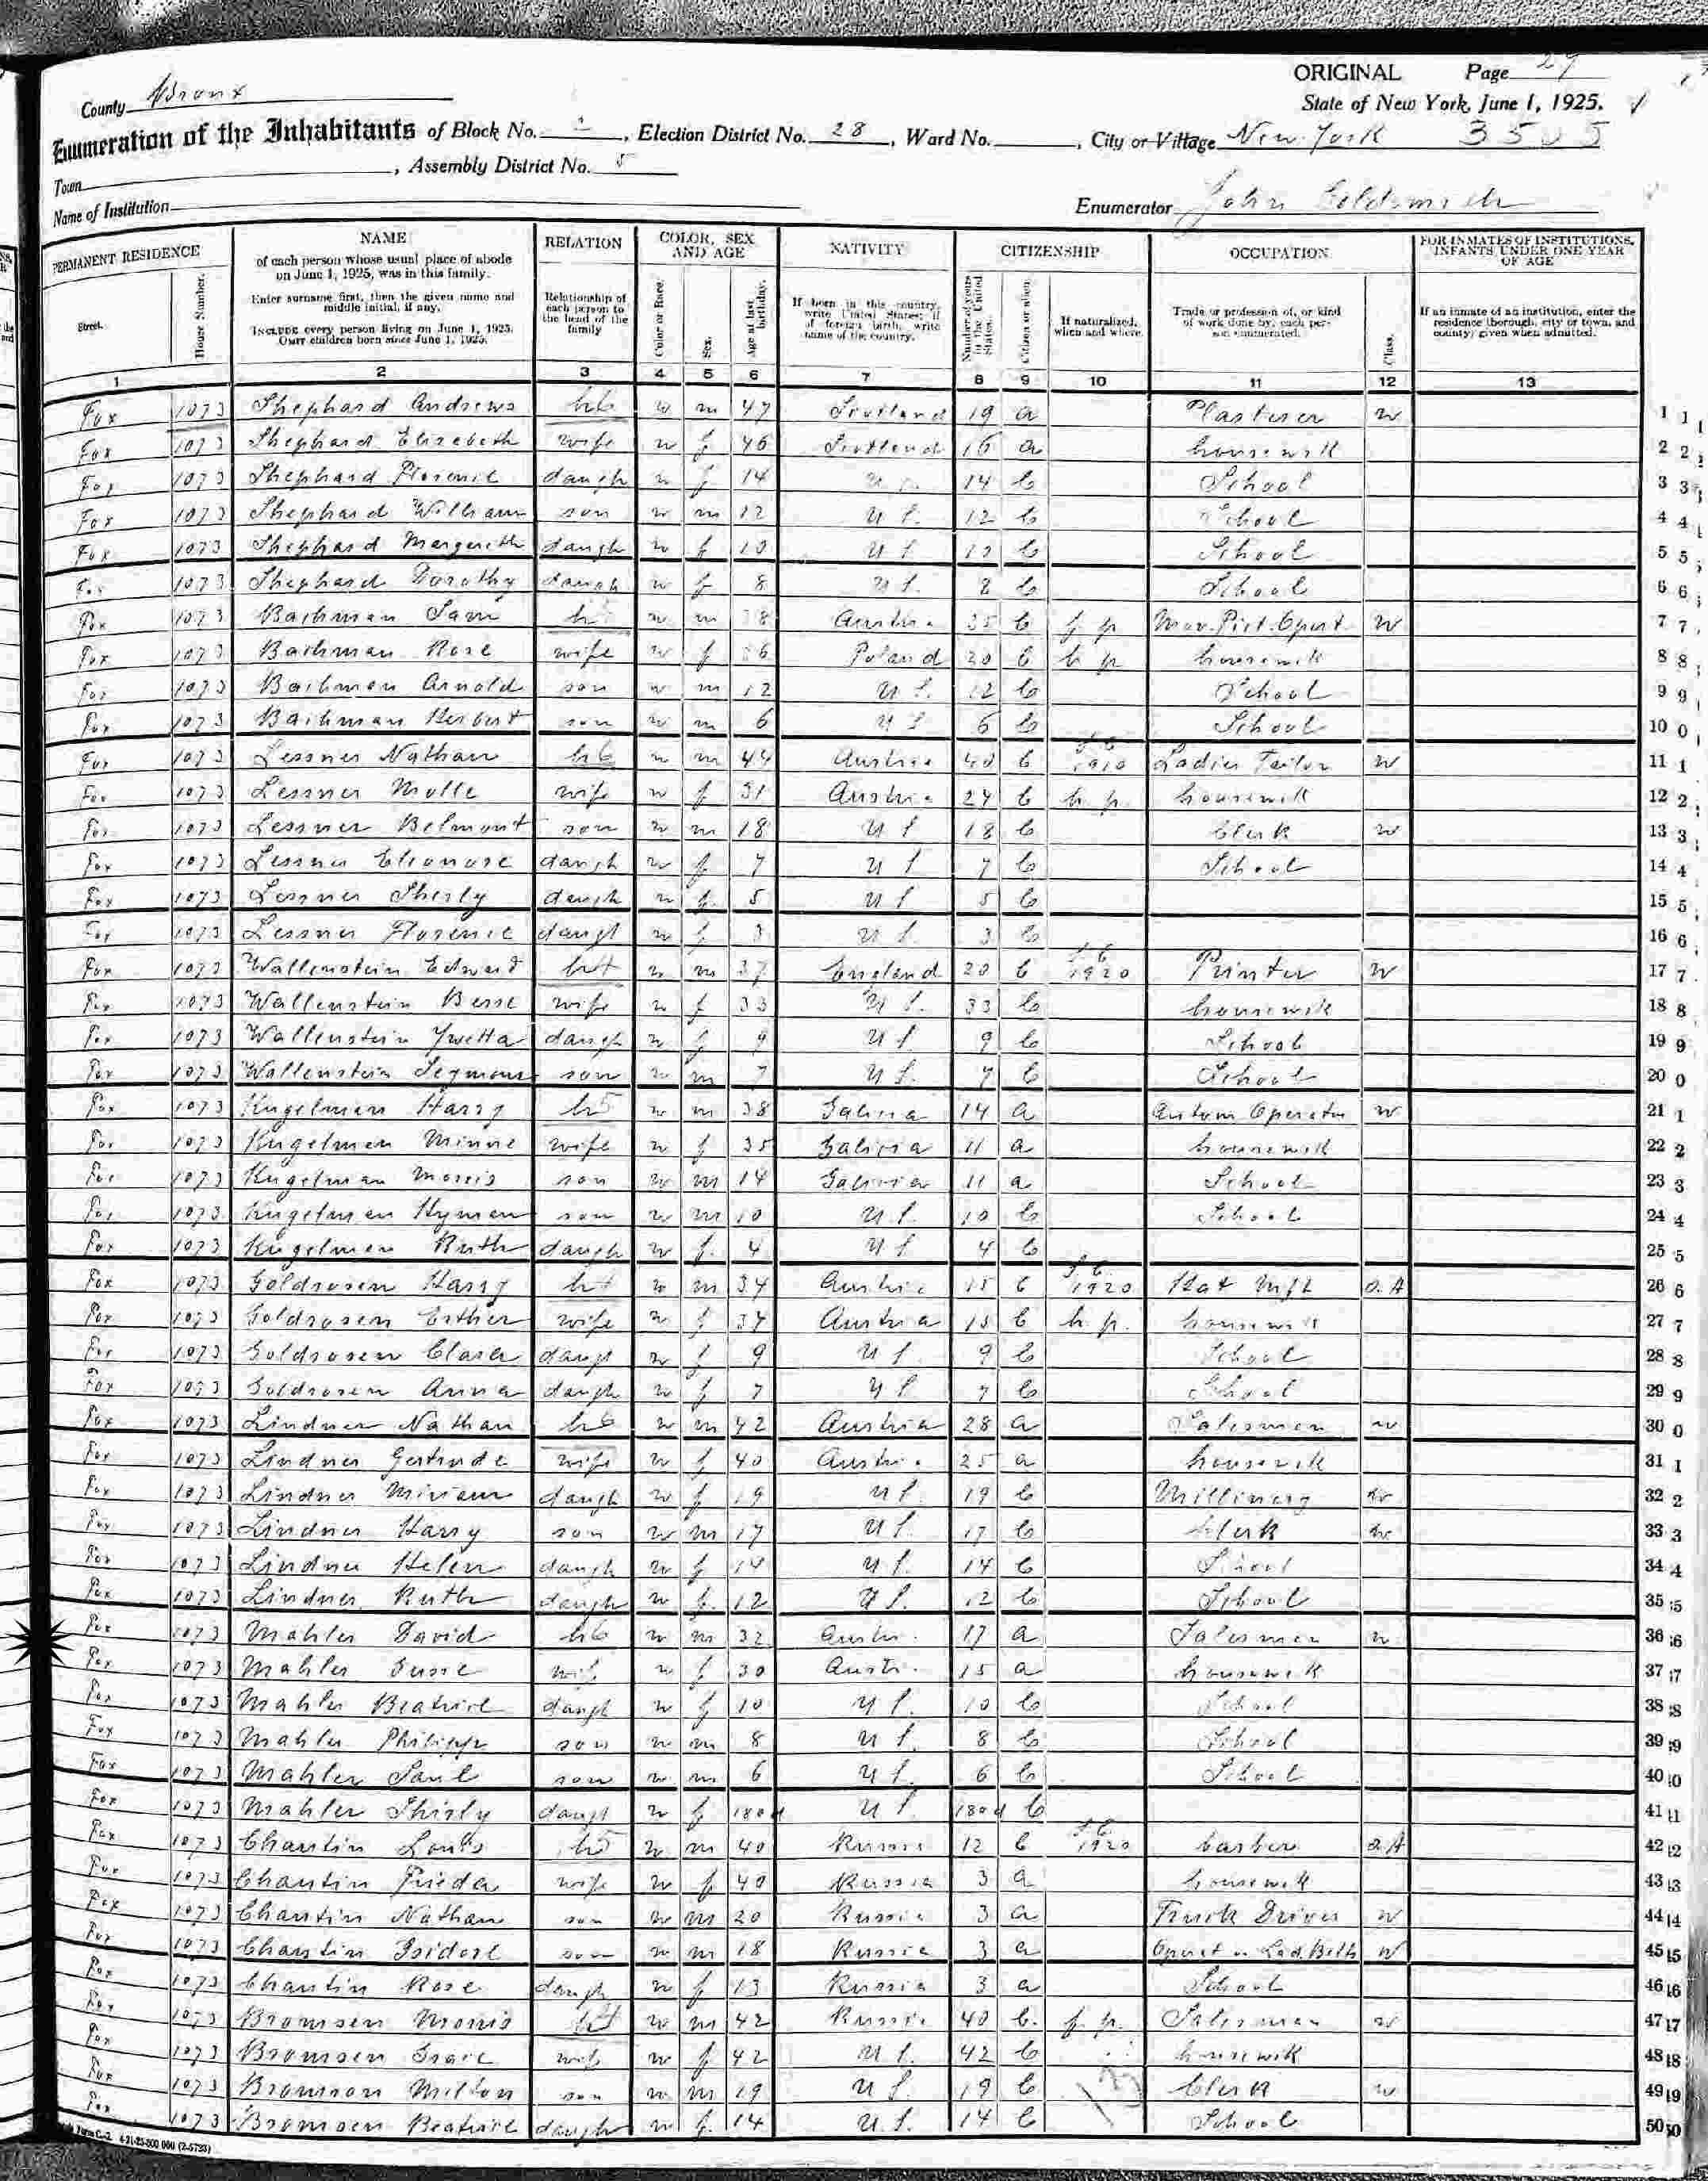 ORIGINAL Page 29
County Bronx State of New York, June 1, 1925.
Enumeration of the Inhabitants of Block No. 2, Election District No. 28, Ward No. , City or Village New York
Town , Assembly District No. 5
Name of Institution Enumerator John Goldsmith
PERMANENT RESIDENCE NAME RELATION COLOR, SEX AND AGE NATIVITY CITIZENSHIP OCCUPATION FOR INMATES OF INSTITUTIONS, INFANTS UNDER ONE YEAR OF AGE
Street. House Number. of each person whose usual place of abode on June 1, 1925, was in this family. Enter surname first, then the given name and middle initial, if any. INCLUDE every person living on June 1, 1925. OMIT children born since June 1, 1925. Relationship of each person to the head of the family Color or Race. Sex. Age at last birthday. If born in this country, write United States; if of foreign birth, write name of the country. Number of years in the United States. Citizen or alien. If naturalized, when and where. Trade or profession of, or kind of work done by, each person enumerated. Class. If an inmate of an institution, enter the residence (borough, city or town, and county) given when admitted.
1 2 3 4 5 6 7 8 9 10 11 12 13
Fox 1073 Shephard Andrews h6 w m 47 Scotland 19 a Plasterer w 1
Fox 1073 Shephard Elizabeth wife w f 46 Scotland 16 a housewik 2
Fox 1073 Shephard Florence daugh w f 14 14 C School 3
Fox 1073 Shephard William son w m 12 U S. 12 C School 4
Fox 1073 Shephard Margareth daugh w f 10 U S 10 C School 5
Fox 1073 Shephard Dorothy daugh w f 8 U S. 8 C School 6
Fox 1073 Bachman Sam w m 38 Austria 35 C f. p. Mov. Pict. Opert. W 7
Fox 1073 Bachman Rose wife w f 36 Poland 20 C h p housewik 8
Fox 1073 Bachman Arnold son w m 12 U S. 12 C School 9
Fox 1073 Bachman Herbert son w m 6 U S 6 C School 10
Fox 1073 Lessner Nathan h6 w m 44 Austria 40 C 1910 Ladies Tailor w 11
Fox 1073 Lessner Molle wife w f 31 Austria 24 C h. p. housewik 12
Fox 1073 Lessner Belmont son w m 18 U S 18 C Clerk w 13
Fox 1073 Lessner Eleonore daugh w f 7 U S 7 C School 14
Fox 1073 Lessner Shirly daugh w f. 5 U S 5 C 15
Fox 1073 Lessner Florence daugh w f 3 U S. 3 C 16
Fox 1073 Wallenstein Edward h4 w m 37 England 20 C 1920 Printer W 17
Fox 1073 Wallenstein Besse wife w f 33 U S. 33 C housewik 18
Fox 1073 Wallenstein Yvetta daugh w f 9 U S 9 C School 19
Fox 1073 Wallenstein Seymour son w m 7 U S. 7 C School 20
Fox 1073 Kugelman Harry h5 w m 38 Galicia 14 a Autom Operator w 21
Fox 1073 Kugelman Minne wife w f 35 Galicia 11 a housewik 22
Fox 1073 Kugelman Morris son w m 14 Galicia 11 a School 23
Fox 1073 Kugelman Hyman son w m 10 U S. 10 C School 24
Fox 1073 Kugelman Ruth daugh w f. 4 U S 4 C 25
Fox 1073 Goldrosen Harry h4 w m 34 Austria 15 C 1920 Hat Mfr O.A 26
Fox 1073 Goldrosen Esther wife w f 34 Austria 15 C h. p. housewik 27
Fox 1073 Goldrosen Clara daugh w f 9 U S 9 C School 28
Fox 1073 Goldrosen Anna daugh w f 7 U S 7 C School 29
Fox 1073 Lindner Nathan h6 w m 42 Austria 28 a Salesman w 30
Fox 1073 Lindner Gertrude wife w f 40 Austria 25 a housewik 31
Fox 1073 Lindner Miriam daugh w f 19 U S. 19 C Millinery w 32
Fox 1073 Lindner Harry son w m 17 U S. 17 C Clerk w 33
Fox 1073 Lindner Helen daugh w f 14 U S. 14 C School 34
Fox 1073 Lindner Ruth daugh w f. 12 U S. 12 C School 35
Fox 1073 Mahler David h6 w m 32 Austr. 17 a Salesman w 36
Fox 1073 Mahler Susse wife w f 30 Austr. 15 a housewik 37
Fox 1073 Mahler Beatrice daugh w f 10 U S. 10 C School 38
Fox 1073 Mahler Philipp son w m 8 U S. 8 C School 39
Fox 1073 Mahler Saul son w m 6 U S. 6 C School 40
Fox 1073 Mahler Shirly daugh w f 180 d U S. 180 d C 41
Fox 1073 Chantin Louis h5 w m 40 Russia 12 C 1920 barber O.A 42
Fox 1073 Chantin Frieda wife w f 40 Russia 3 a housewik 43
Fox 1073 Chantin Nathan son w m 20 Russia 3 a Truck Driver w 44
Fox 1073 Chantin Isidore son w m 18 Russia 3 a Operat. on Lad. Belts W 45
Fox 1073 Chantin Rose daugh w f 13 Russia 3 a School 46
Fox 1073 Bromsen Morris h4 w m 42 Russia 40 C. f. p. Salesman w 47
Fox 1073 Bromsen Grace wife w f 42 U S. 42 C housewik 48
Fox 1073 Bromsen Milton son w m 19 U S. 19 C Clerk w 49
Fox 1073 Bromsen Beatrice daugh w f. 14 U. S. 14 C School 50